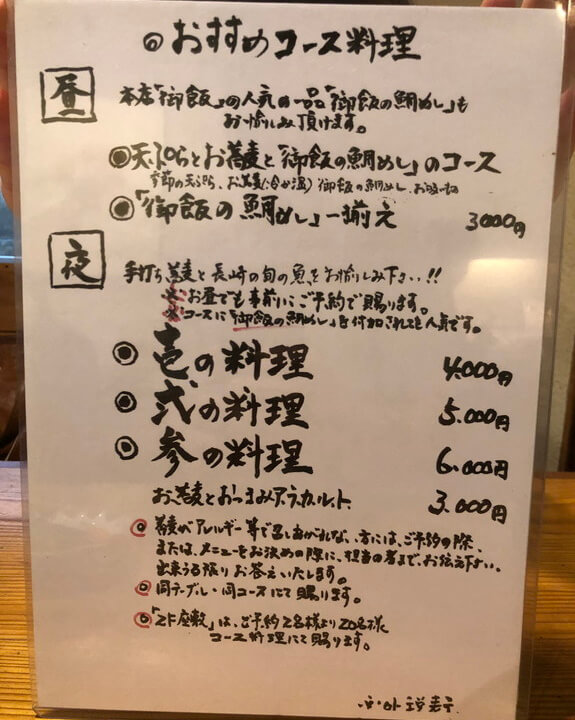 ◎おすすめコース料理
昼
本店「御飯」の人気の一品「御飯の鯛めし」も
お愉しみ頂けます。
◎天ぷらとお蕎麦と「御飯の鯛めし」のコース
季節の天ぷら、お蕎麦(冷か温)御飯の鯛めし、お吸い物
◎「御飯の鯛めし」一揃え 3000円
夜
手打ち蕎麦と長崎の旬の魚をお愉しみ下さい!!
※お昼でも事前にご予約で賜ります。
※コースに「御飯の鯛めし」を付加されても人気です。
◎壱の料理 4.000円
◎弐の料理 5.000円
◎参の料理 6.000円
お蕎麦とおつまみアラカルト 3.000円
◎蕎麦がアレルギー等で召しあがれない方には、ご予約の際、
または、メニューをお決めの際に、担当の者まで、お伝え下さい。
出来うる限りお答えいたします。
◎同テーブル・同コースにて賜ります。
◎「2F座敷」は、ご予約2名様より20名様
コース料理にて賜ります。